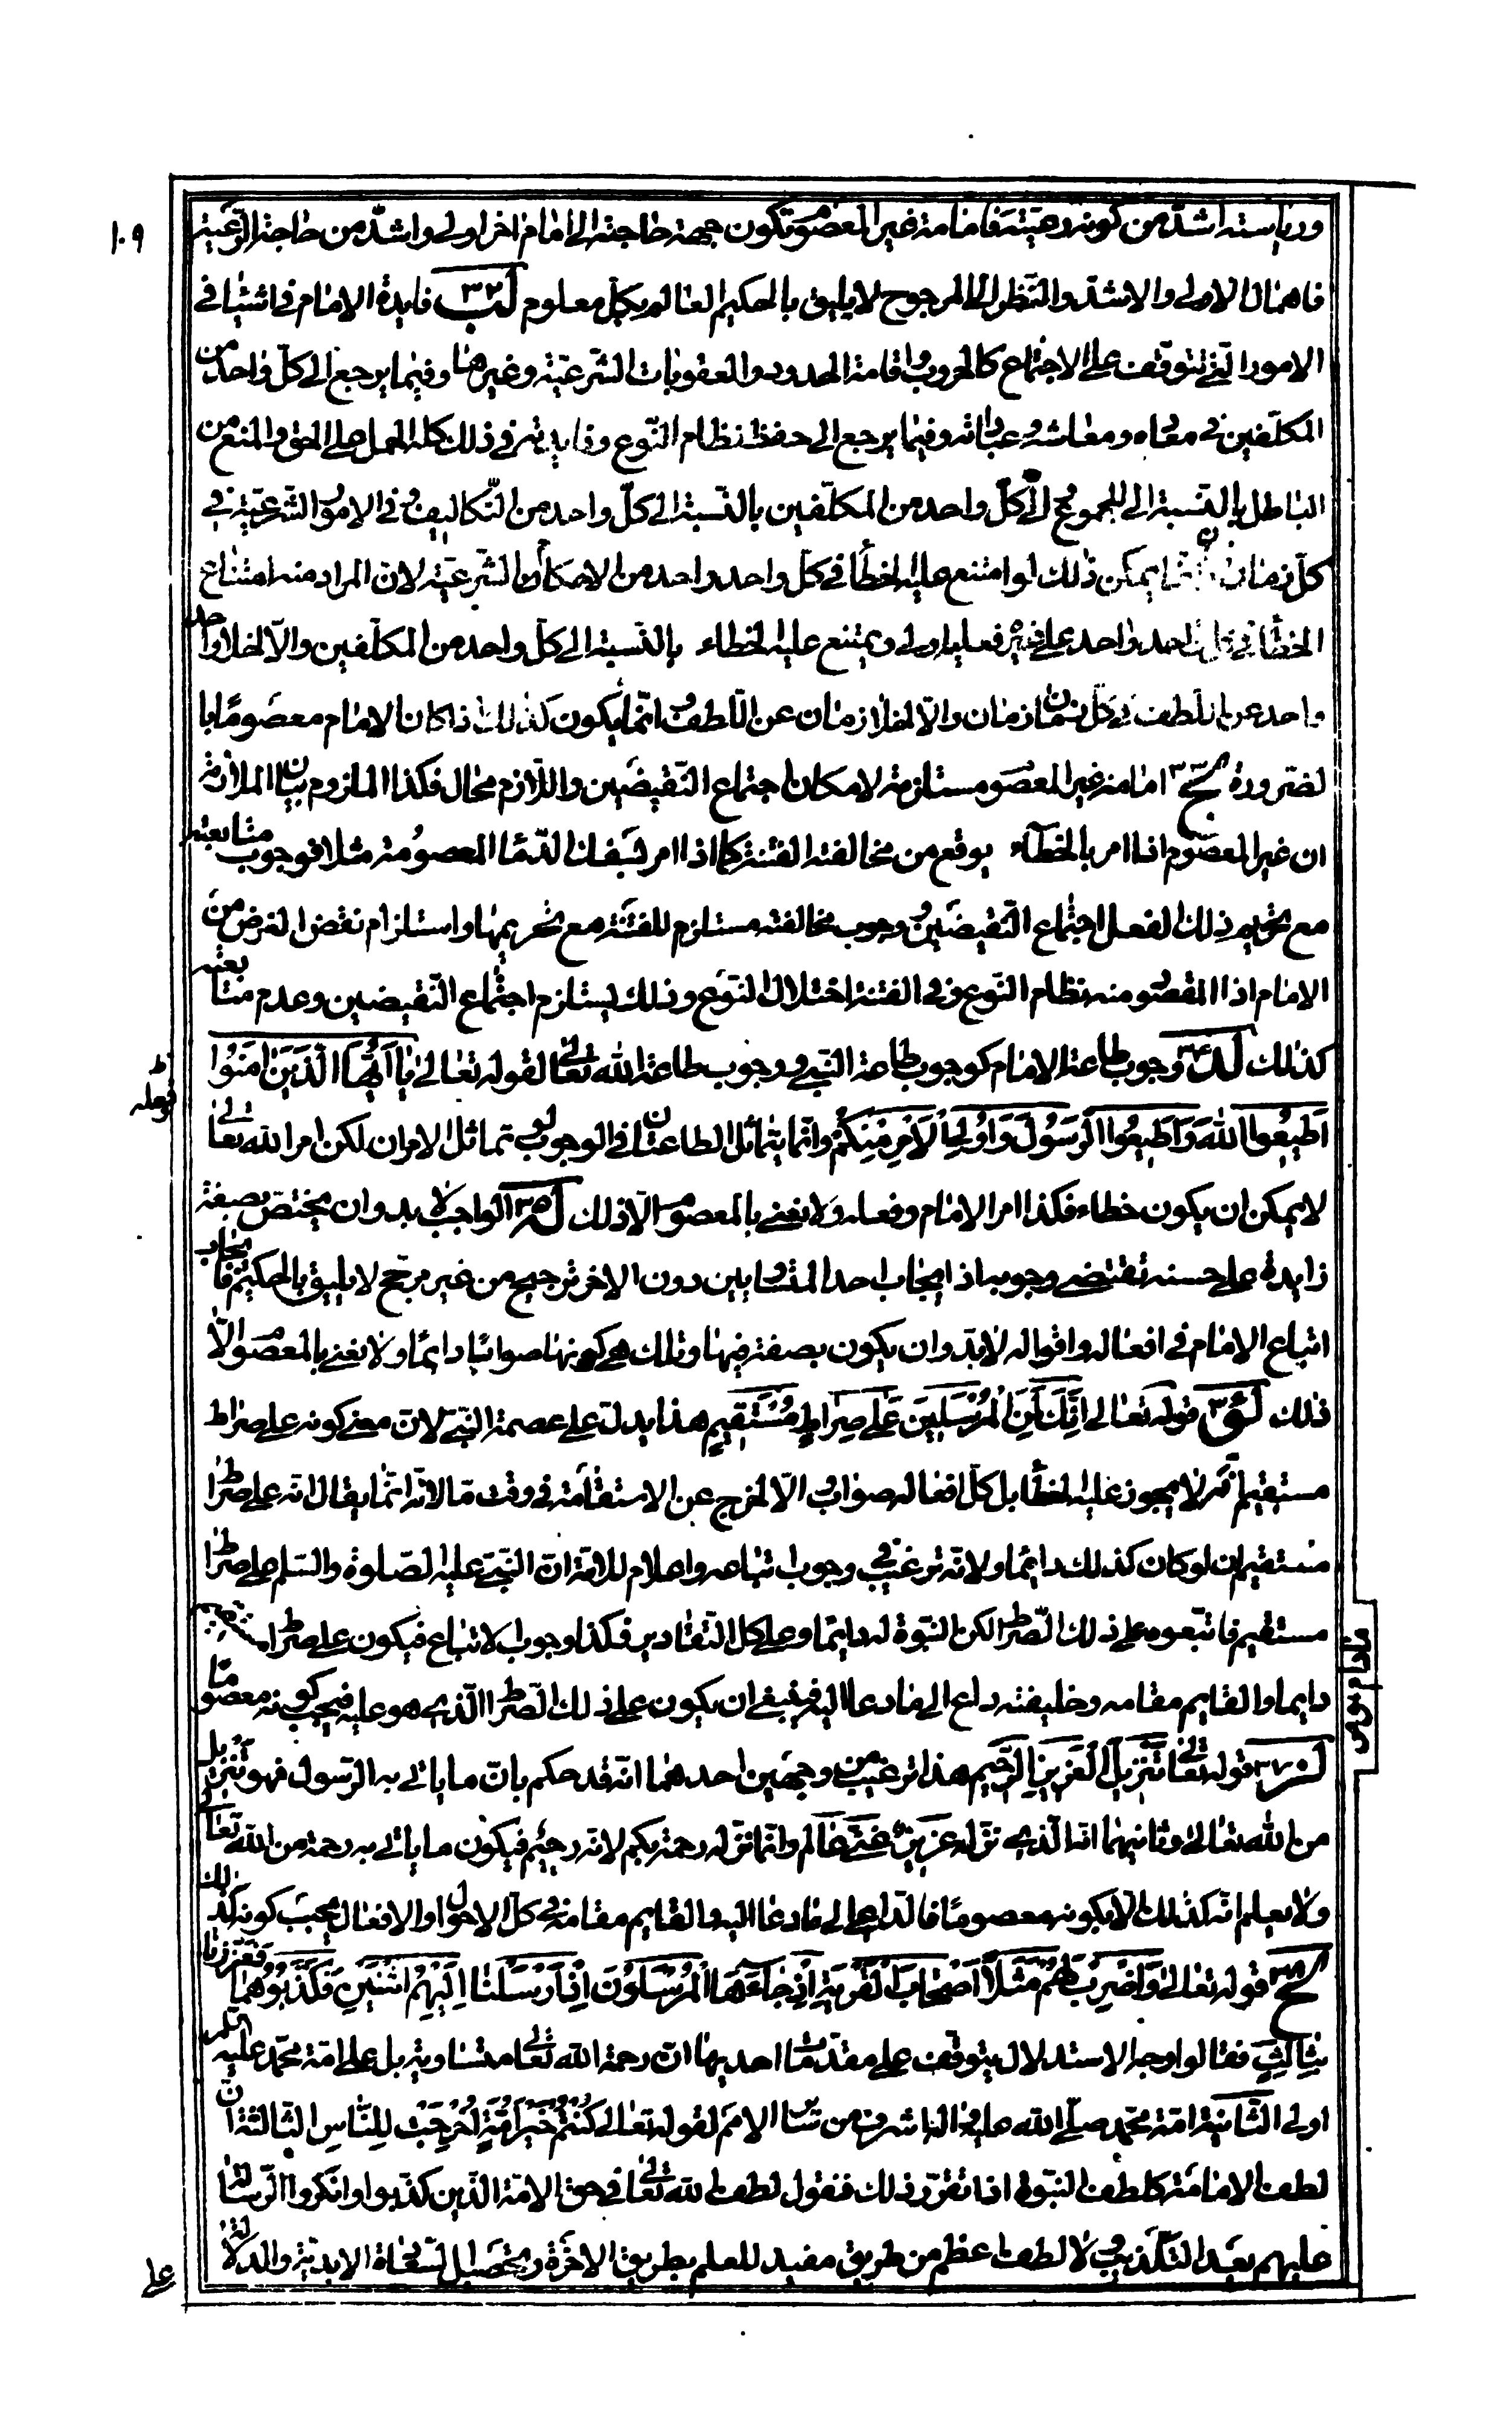 ١٠٩
ورياسته اشدّ من كونه رعيّته فامامة غير المعصوم تكون جهة حاجته الى امام اخر اولى واشدّ من حاجة الرّعيّة
فاهمال الاولى والاشدّ والنّظر الى المرجوح لا يليق بالحكيم العالم بكلّ معلوم لب ٣٢ فايدة الامام فى اشيا فى
الامور الّتى تتوقّف على الاجتماع كالحروب واقامة الحدود والعقوبات الشّرعيّة وغيرها وفيما يرجع الى كلّ واحد من
المكلّفين فى معاده ومعاشه وعباداته وفيما يرجع الى حفظ نظام النّوع وفايدته فى ذلك كله الحمل على الحق والمنع من
الباطل بالنّسبة الى المجموع والى كلّ واحد من المكلّفين بالنّسبة الى كلّ واحد من التّكاليف فى الامور الشّرعيّة فى
كلّ زمان يمكن ذلك لو امتنع عليه الخطأ فى كلّ واحد واحد من الاحكام الشّرعيّة لانّ المراد منه امتناع
الخطأ فى واحد واحد على غير ويمتنع عليه الخطاء بالنّسبة الى كلّ واحد من المكلّفين والّا لخلا واحد
واحد عن اللّطف فى كلّ زمان زمان والّا لخلا زمان عن اللّطف وانّما يكون كذلك اذا كان الامام معصومًا با
لضرورة لج ٣٣ امامة غير المعصوم مستلزمة لامكان اجتماع النّقيضين واللّازم محال فكذا الملزوم بيان الملازمة
ان غير المعصوم اذا امر بالخطاء يوقع من مخالفته الفتنة كما اذا امر بسفك الدّماء المعصومة مثلا فوجوب متابعته
مع تحريم ذلك الفعل اجتماع النّقيضين ووجوب مخالفته مستلزم للفتنة مع تحريمها واستلزام نقض الغرض من
الامام اذ المقصود منه نظام النّوع وفى الفتنة اختلال النّوع وذلك يستلزم اجتماع النّقيضين وعدم متابعته
كذلك لد ٣٤ وجوب طاعة الامام كوجوب طاعة النّبى ووجوب طاعة الله تعالى لقوله تعالى يَا اَيُّهَا الَّذينَ امَنُوا
اَطيعُوا اللهَ وَاَطيعُوا الرَّسُولَ وَاُولِى الْاَمْرِ مِنْكُمْ وانّما يتماثل الطاعتان فى الوجوب لو تماثل الامران لكن امر الله تعالى
لا يمكن ان يكون خطاء فكذا امر الامام وفعله ولا نعنى بالمعصوم الّا ذلك له ٣٥ الواجب لا بد وان يختصّ بصفة
زايدة على حسنه تقتضى وجوبه اذ ايجاب احد المتساويين دون الاخر ترجيح من غير مرجّح لا يليق بالحكيم فايجاب
اتباع الامام فى افعاله واقواله لا بدّ وان يكون بصفة فيها وتلك هى كونها صوابًا دايمًا ولا نعنى بالمعصوم الّا
ذلك لو ٣٦ قوله تعالى اِنَّكَ لَمِنَ الْمُرْسَلينَ عَلى صِراطٍ مُسْتَقيمٍ هذا يدلّ على عصمة النّبى لانّ معنى كونه على صراط
مستقيم انّه لا يجوز عليه الخطأ بل كلّ افعاله صواب والّا لخرج عن الاستقامة فى وقت مّا لانّه انّما يقال انّه على صراط
مستقيم ان لو كان كذلك دايمًا ولانّه ترغيب فى وجوب اتباعه واعلام للامّة انّ النّبى عليه الصّلوة والسّلم على صراط
مستقيم فاتّبعوه على ذلك الصّراط لكن النّبوة له دايما وعلى كل التّقادير فكذا وجوب الاتباع فيكون على صراط مستقيم
دايما والقايم مقامه وخليفته داع الى ما دعا اليه فينبغى ان يكون على ذلك الصّراط الّذى هو عليه فيجب كونه معصومًا
لز ٣٧ قوله تعالى تَنْزيلَ الْعَزيزِ الرَّحيمِ هذا ترغيب من وجهين احدهما انّه قد حكم بانّ ما ياتى به الرّسول فهو تنزيل
من الله تعالى وثانيهما انه الّذى نزّله عزيز غنى عالم وانّما نزّله رحمة بكم لانه رحيم فيكون ما ياتى به رحمة من الله تعالى
ولا يعلم انّه كذلك الّا بكونه معصومًا فالدّاعى الى ما دعا اليه والقايم مقامه فى كلّ الاحوال والافعال يجب كونه كذلك
لح ٣٨ قوله تعالى وَاضْرِبْ لَهُمْ مَثَلًا اَصْحابَ الْقَرْيَةِ اِذْ جاءَهَا الْمُرْسَلُونَ اِذْ اَرْسَلْنا اِلَيْهِمُ اثْنَيْنِ فَكَذَّبُوهُما فَعَزَّزْنا
بِثالِثٍ فقالوا وجه الاستدلال يتوقف على مقدّمات احديها انّ رحمة الله تعالى متساوية بل على امّة محمّد عليه السّلم
اولى الثّانية امّة محمّد صلّى الله عليه واله اشرف من سائر الامم لقوله تعالى كُنْتُمْ خَيْرَ اُمَّةٍ اُخْرِجَتْ لِلنّاسِ الثّالثة انّ
لطف الامامة كلطف النّبوة اذا تقرّر ذلك فنقول لطف الله تعالى فى حق الامّة الّذين كذّبوا وانكروا الرّسالة
عليهم بعد التّكذيب ولا لطف اعظم من طريق مفيد للعلم بطريق الاخرة ويحصّل السّعادة الابديّة والدلالة
على